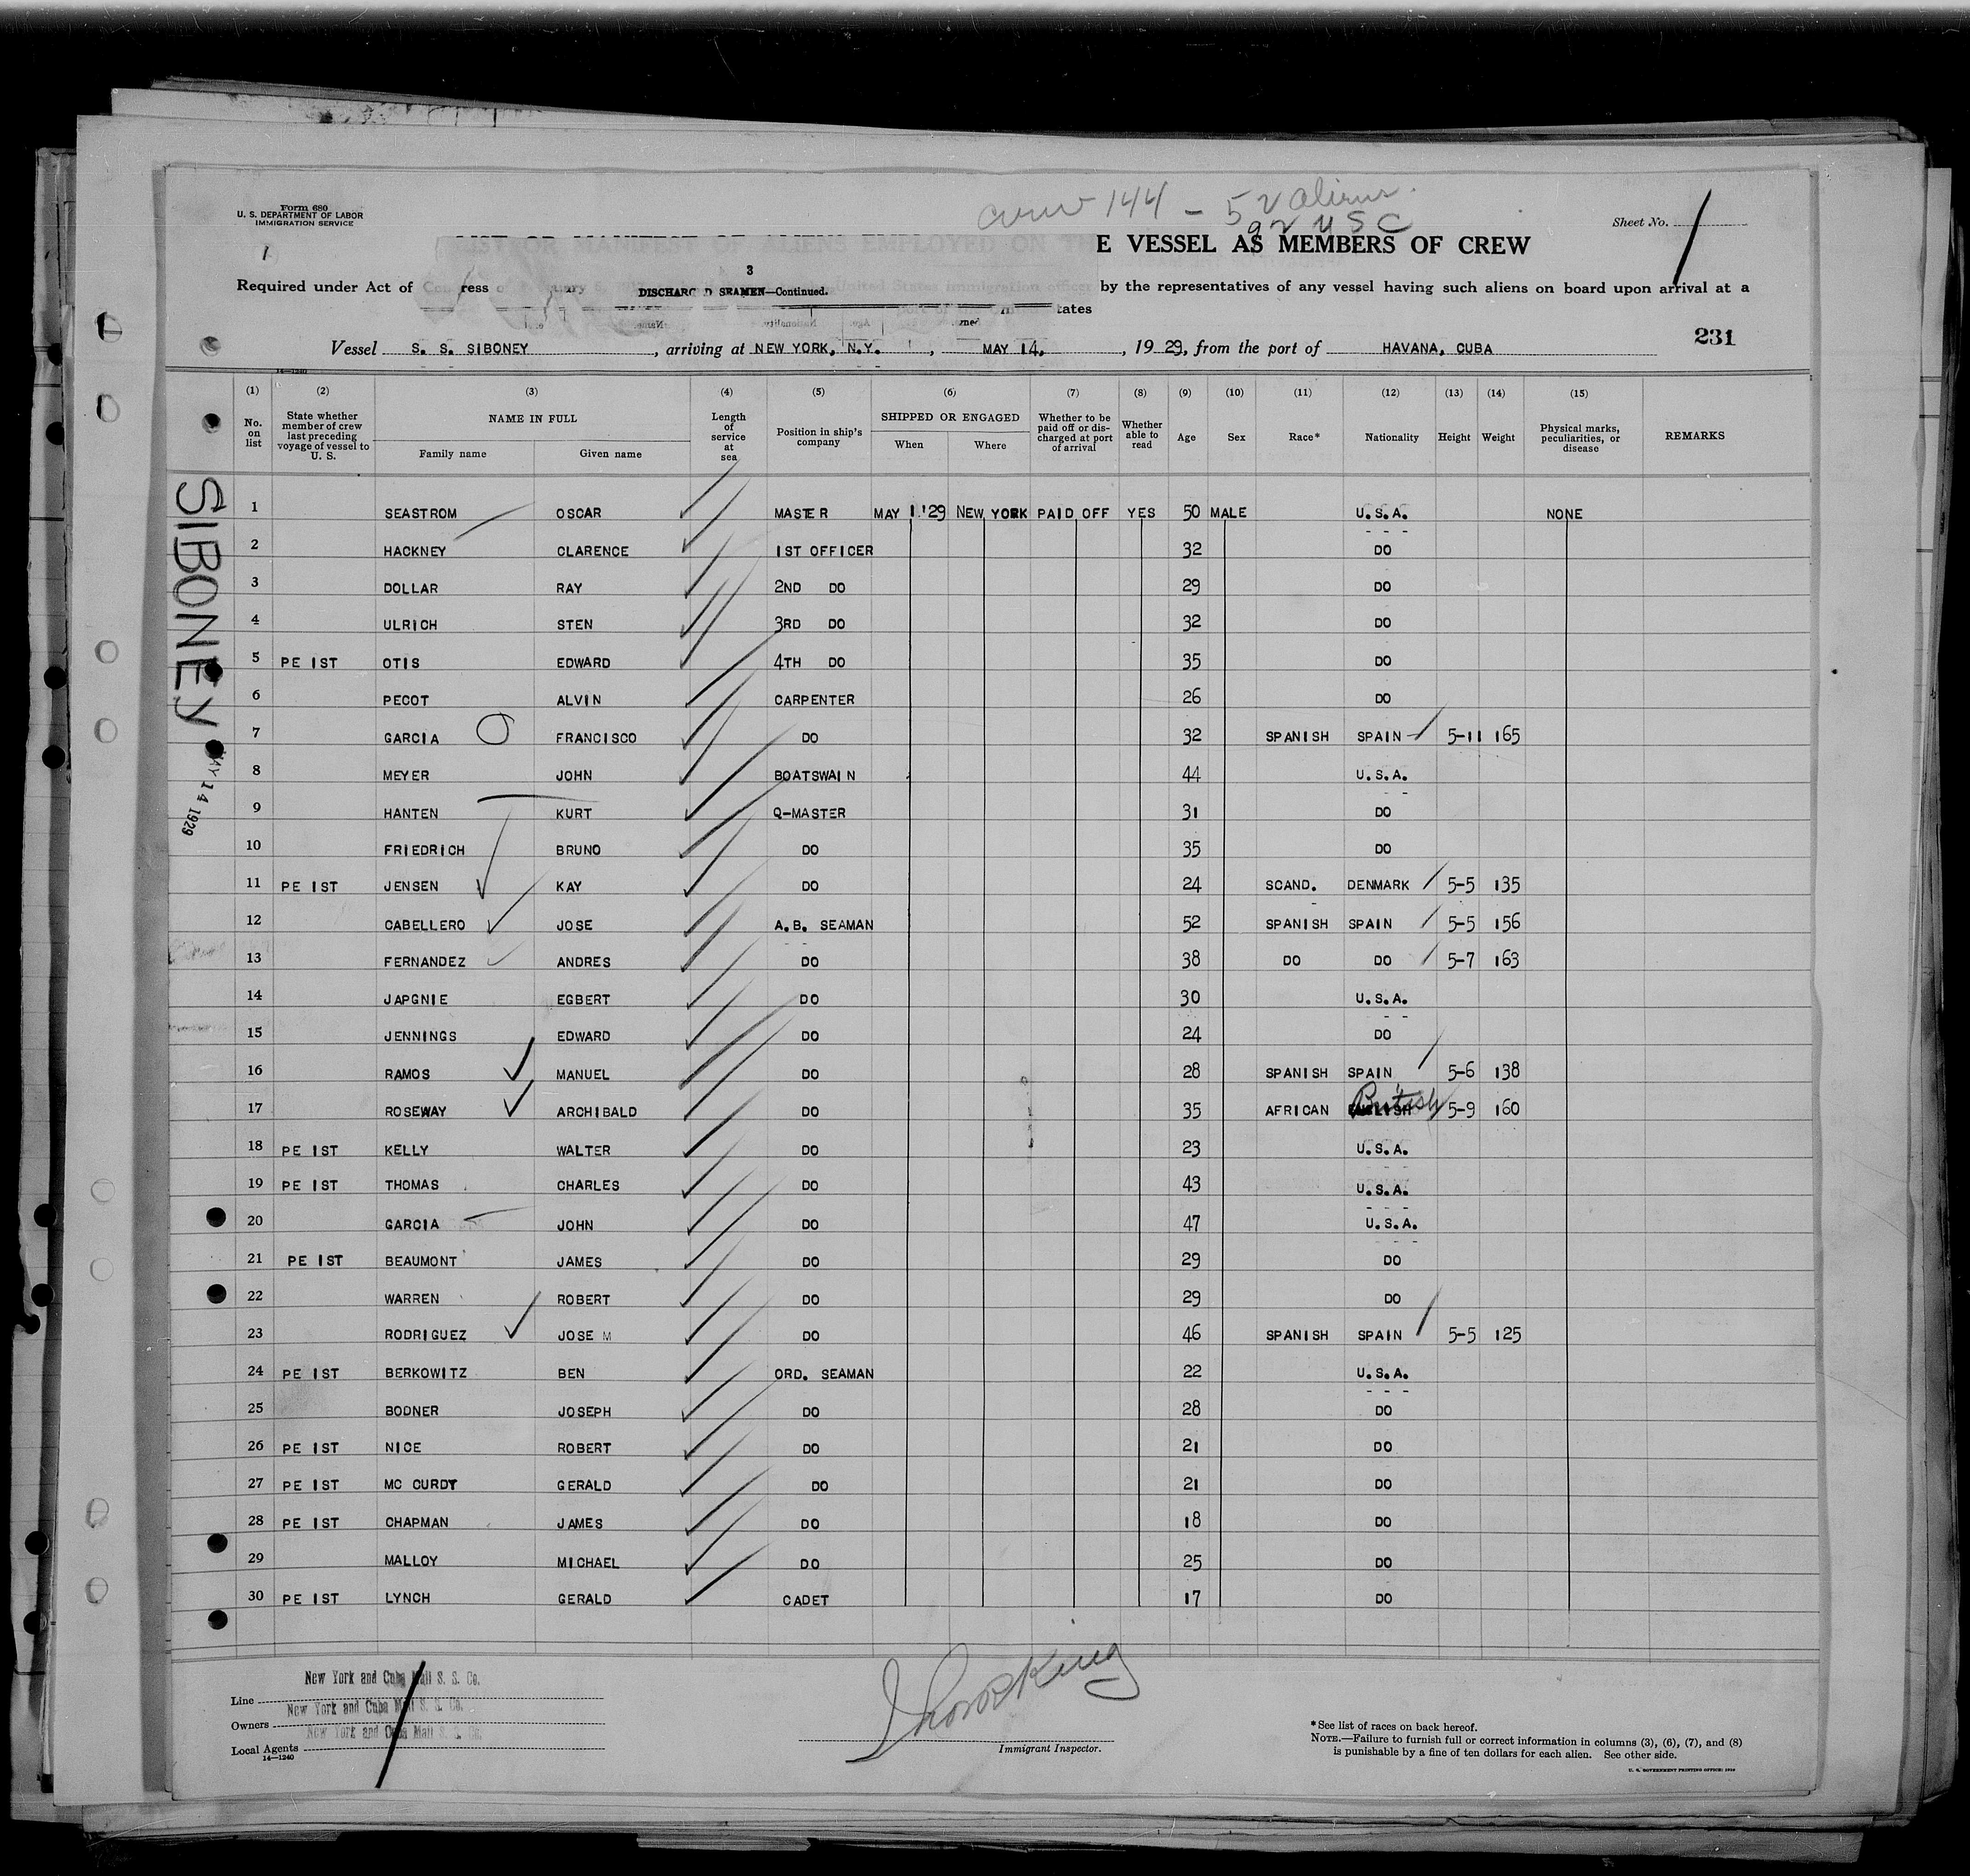 Form 680
U. S. DEPARTMENT OF LABOR
IMMIGRATION SERVICE
1
crew 144 - 52 aliens.
92 USC
Sheet No. 1
LIST OR MANIFEST OF ALIENS EMPLOYED ON THE VESSEL AS MEMBERS OF CREW
3
Required under Act of Congress DISCHARGED SEAMEN—Continued. United States immigration officer by the representatives of any vessel having such aliens on board upon arrival at a
tates
231
Vessel S. S. SIBONEY, arriving at NEW YORK, N.Y., MAY 14, 1929, from the port of HAVANA, CUBA
(1) (2) (3) (4) (5) (6) (7) (8) (9) (10) (11) (12) (13) (14) (15)
No. on list State whether member of crew last preceding voyage of vessel to U. S. NAME IN FULL Family name Given name Length of service at sea Position in ship's company SHIPPED OR ENGAGED When Where Whether to be paid off or discharged at port of arrival Whether able to read Age Sex Race* Nationality Height Weight Physical marks, peculiarities, or disease REMARKS
SIBONEY
MAY 14 1929
1 SEASTROM OSCAR MASTER MAY 1 '29 NEW YORK PAID OFF YES 50 MALE U.S.A. NONE
2 HACKNEY CLARENCE 1ST OFFICER 32 DO
3 DOLLAR RAY 2ND DO 29 DO
4 ULRICH STEN 3RD DO 32 DO
5 PE IST OTIS EDWARD 4TH DO 35 DO
6 PECOT ALVIN CARPENTER 26 DO
7 GARCIA FRANCISCO DO 32 SPANISH SPAIN 5-11 165
8 MEYER JOHN BOATSWAIN 44 U.S.A.
9 HANTEN KURT Q-MASTER 31 DO
10 FRIEDRICH BRUNO DO 35 DO
11 PE IST JENSEN KAY DO 24 SCAND. DENMARK 5-5 135
12 CABELLERO JOSE A.B. SEAMAN 52 SPANISH SPAIN 5-5 156
13 FERNANDEZ ANDRES DO 38 DO DO 5-7 163
14 JAPGNIE EGBERT DO 30 U.S.A.
15 JENNINGS EDWARD DO 24 DO
16 RAMOS MANUEL DO 28 SPANISH SPAIN 5-6 138
17 ROSEWAY ARCHIBALD DO 35 AFRICAN British 5-9 160
18 PE IST KELLY WALTER DO 23 U.S.A.
19 PE IST THOMAS CHARLES DO 43 U.S.A.
20 GARCIA JOHN DO 47 U.S.A.
21 PE IST BEAUMONT JAMES DO 29 DO
22 WARREN ROBERT DO 29 DO
23 RODRIGUEZ JOSE M DO 46 SPANISH SPAIN 5-5 125
24 PE IST BERKOWITZ BEN ORD. SEAMAN 22 U.S.A.
25 BODNER JOSEPH DO 28 DO
26 PE IST NICE ROBERT DO 21 DO
27 PE IST MC CURDY GERALD DO 21 DO
28 PE IST CHAPMAN JAMES DO 18 DO
29 MALLOY MICHAEL DO 25 DO
30 PE IST LYNCH GERALD CADET 17 DO
Line New York and Cuba Mail S. S. Co.
Owners New York and Cuba Mail S. S. Co.
Local Agents New York and Cuba Mail S. S. Co.
14—1240
Immigrant Inspector.
*See list of races on back hereof.
NOTE.—Failure to furnish full or correct information in columns (3), (6), (7), and (8)
is punishable by a fine of ten dollars for each alien. See other side.
U. S. GOVERNMENT PRINTING OFFICE: